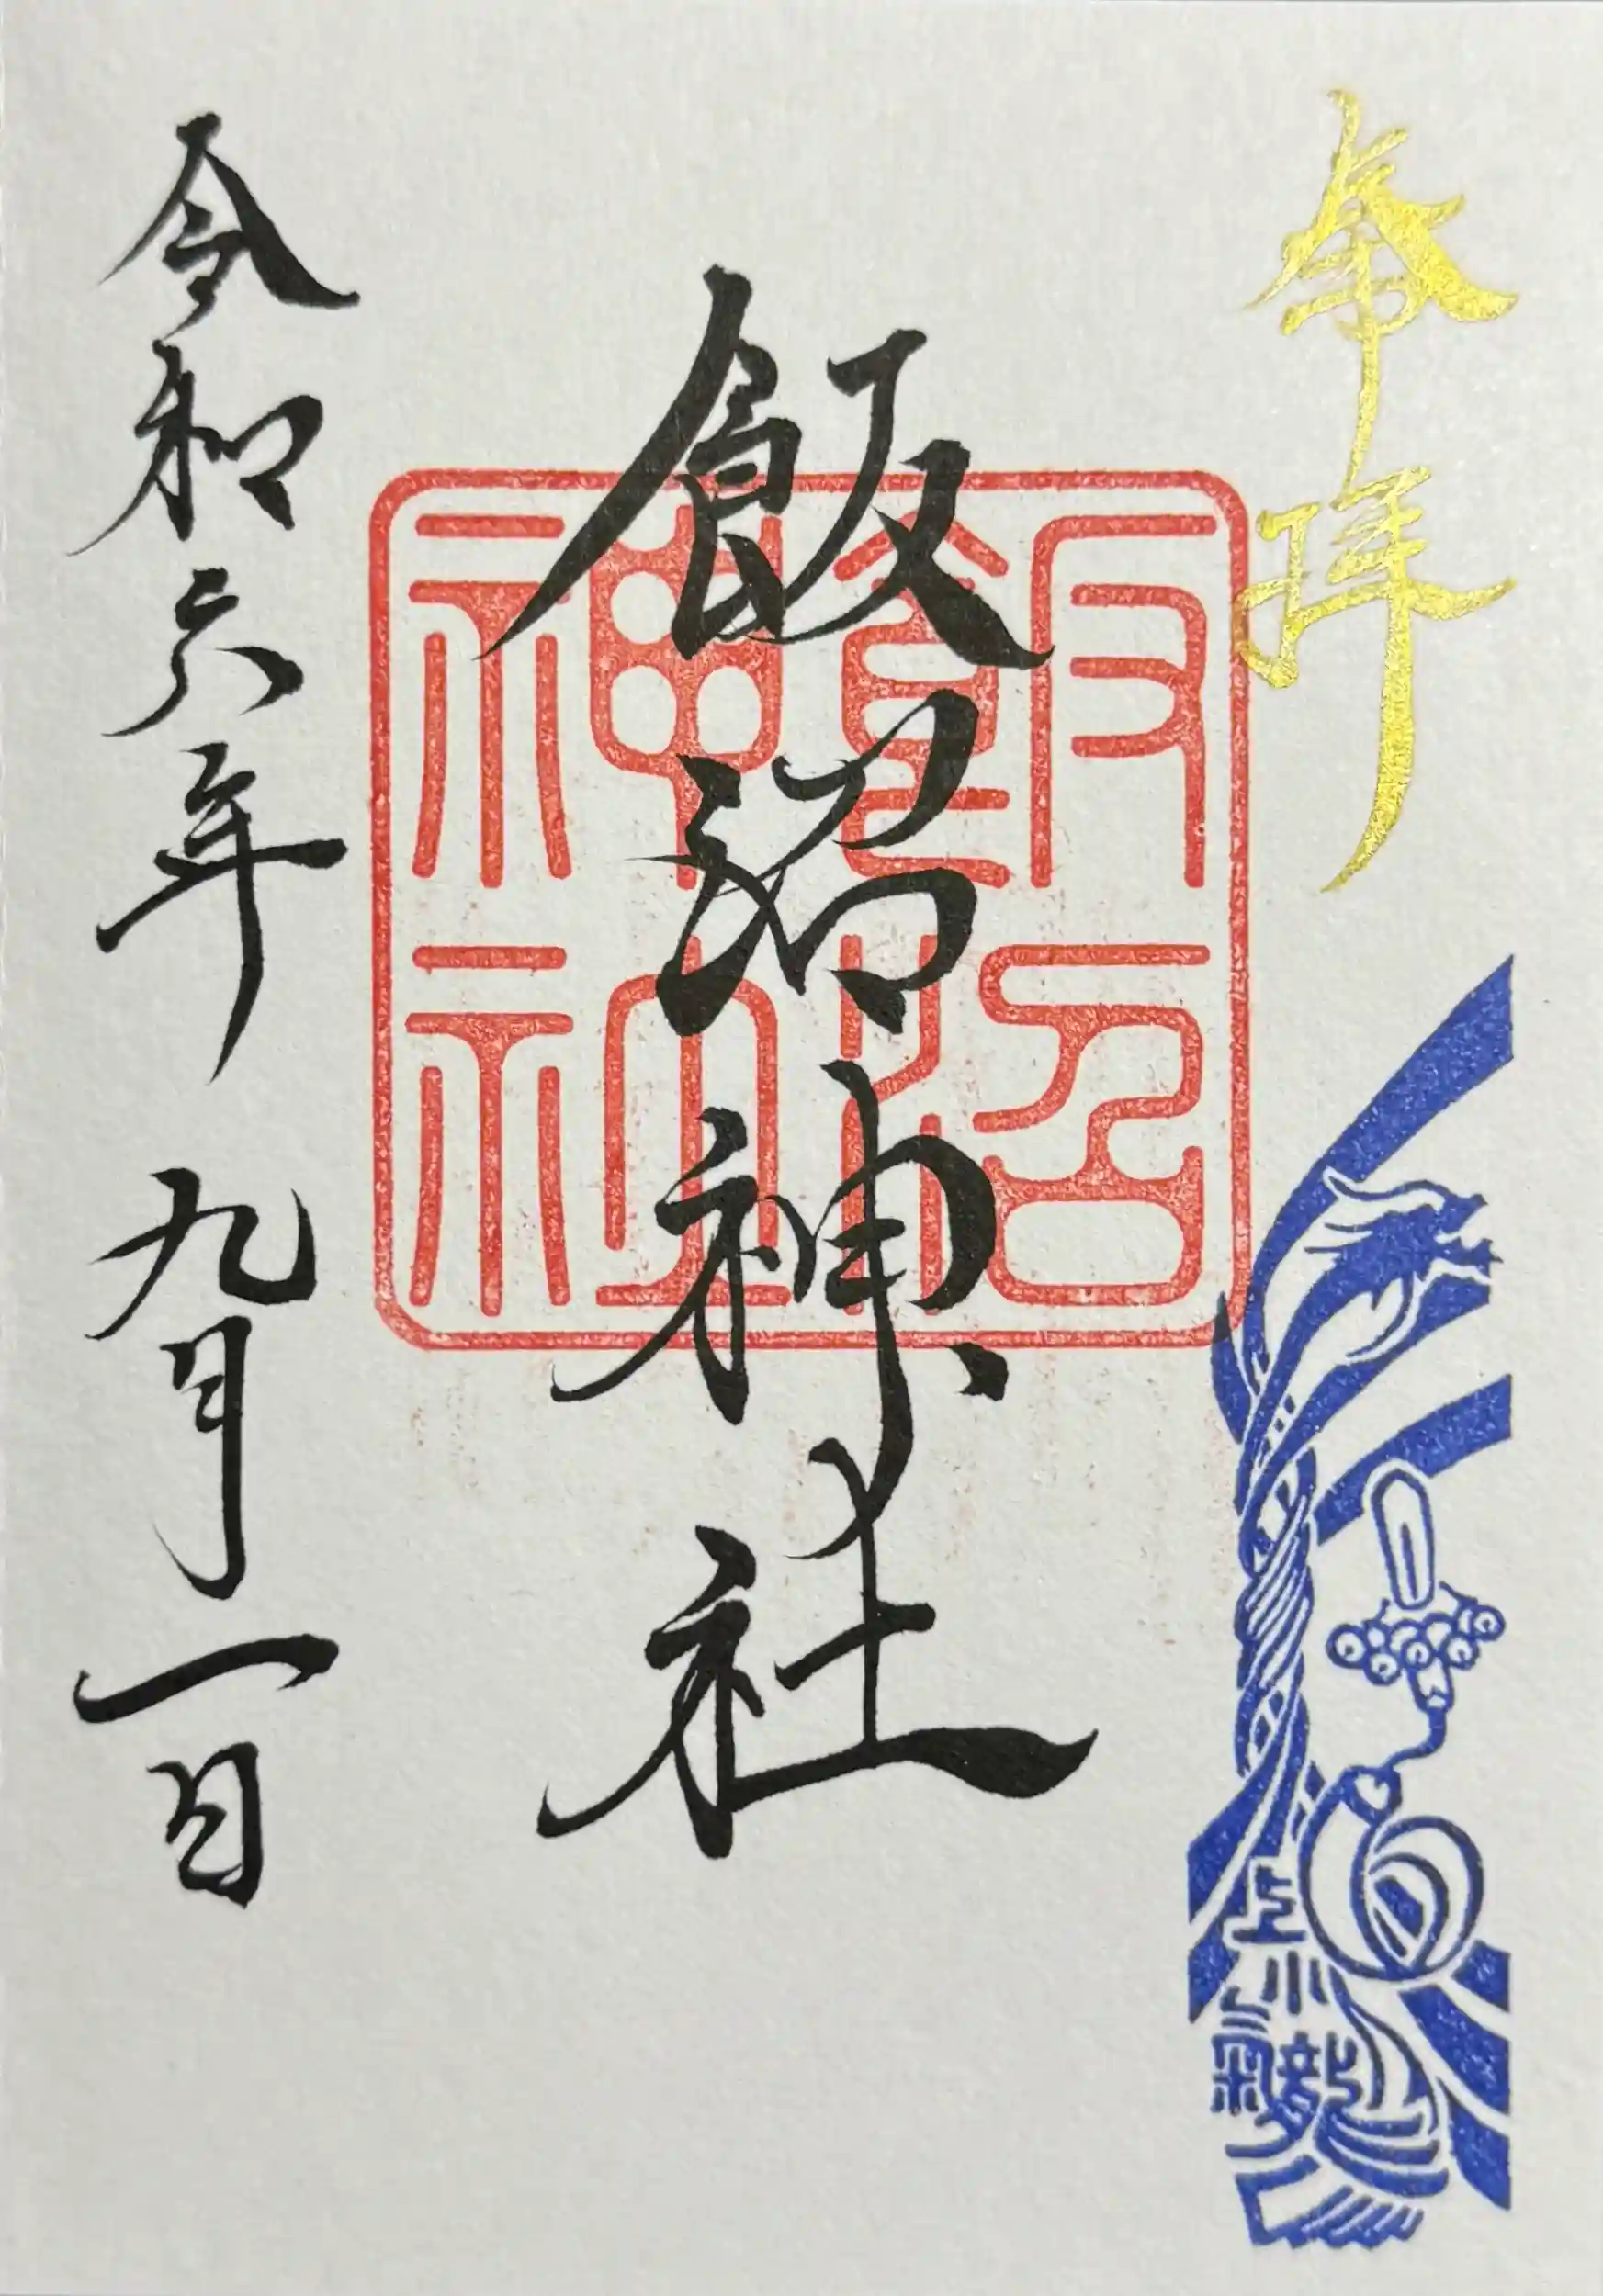 奉拝
飯沼神社
飯沼
神社
令和六年 九月一日